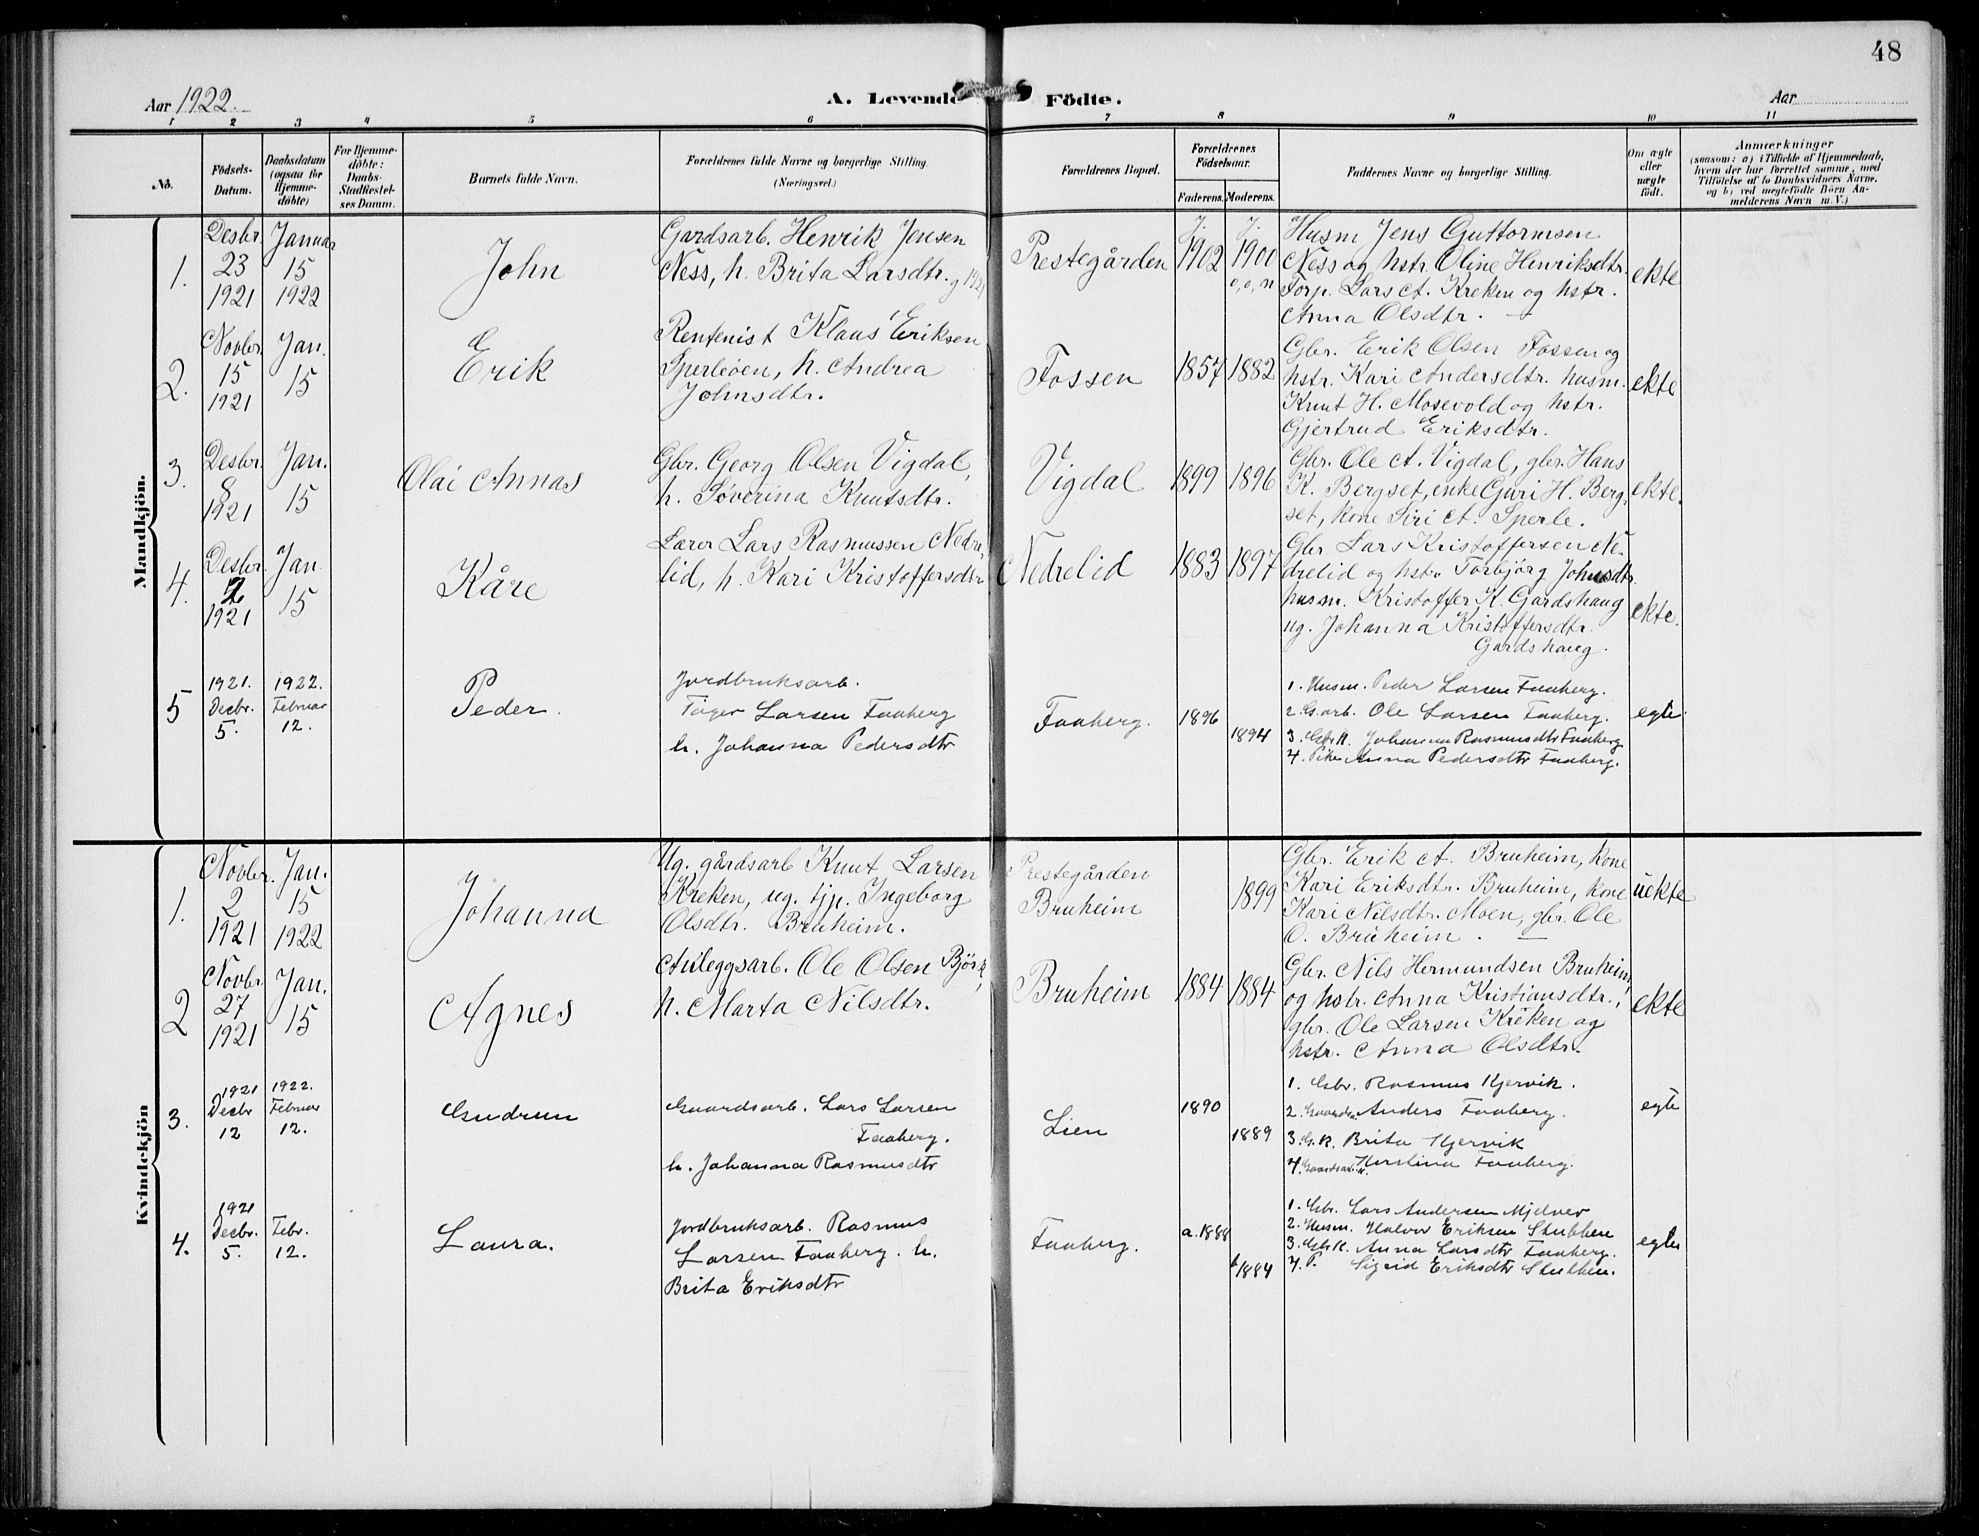 48
Aar 1922.
A. Levende Födte.
Aar
1 2 3 4 5 6 7 8 9 10 11
No.
Födsels-Datum.
Daabsdatum (ogsaa for Hjemme-döbte)
For Hjemme-döbte: Daabs-Stadfestel-ses Datum.
Barnets fulde Navn.
Forældrenes fulde Navne og borgerlige Stilling. (Næringsvei.)
Forældrenes Bopæl.
Forældrenes Födselsaar.
Faderens. Moderens.
Faddernes Navne og borgerlige Stilling.
Om ægte eller uægte födt.
Anmærkninger
(saasom: a) i Tilfælde af Hjemmedaab, hvem der har forrettet samme, med Tilföielse af to Daabsvidners Navne. og b) ved uægtefödte Börn An-melderens Navn m. V.)
Mandkjön.
1.
Desbr. 23 1921
Januar 15 1922
John
Gardsarb. Henrik Jensen
Ness, h. Brita Larsdtr. g 1921
Prestegården
1902
1900
Husm Jens Guttormsen
Ness og hstr. Oline Henriksdtr.
Torp. Lars A. Kreken og hstr.
Anna Olsdtr.
ekte
2.
Novbr. 15 1921
Jan. 15
Erik
Rentenist Klaus Eriksen
Sperleöen, h. Andrea
Johnsdtr.
Fossen
1857
1882
Gbr. Erik Olsen Fossen og
hstr. Kari Andersdtr. husm.
Knut H. Mosevold og hstr.
Gjertrud Eriksdtr.
ekte
3.
Desbr. 8 1921
Jan. 15
Olai Annas
Gbr. Georg Olsen Vigdal,
h. Söverina Knutsdtr.
Vigdal
1899
1896
Gbr. Ole A. Vigdal, gbr. Hans
K. Bergset, enke Guri H. Berg-
set, kone Siri A. Sperle.
ekte.
4.
Desbr. 1921
Jan 15
Kåre
Lærer Lars Rasmussen Nedre-
lid, h. Kari Kristoffersdtr
Nedrelid
1883
1897
Gbr. Lars Kristoffersen Ne-
drelid og hstr Torbjörg Johnsdtr.
husm. Kristoffer K. Gardshaug
ug. Johanna Kristoffersdtr.
Gardshaug.
ekte.
5
1921. Decbr. 5.
1922. Februar 12.
Peder.
Jordbruksarb.
Töger Larsen Faaberg
h. Johanna Pedersdtr
Faaberg.
1896
1894
1. Husm. Peder Larsen Faaberg.
2. G.arb. Ole Larsen Faaberg.
3. Gbr K. Johanna Rasmusdtr Faaberg
4. Pike Anna Pedersdtr Faaberg.
egte
Kvindekjön
1.
Novbr. 2 1921
Jan. 15 1922
Johanna
Ug. gårdsarb Knut Larsen
Kreken, ug. tjp. Ingeborg
Olsdtr. Bruheim.
Prestegården
Bruheim
1899
Gbr. Erik A. Bruheim, kone
Kari Eriksdtr. Bruheim, kone
Kari Nilsdtr. Moen, gbr. Ole
O. Bruheim.
uekte
2
Novbr 27 1921
Jan. 15
Agnes
Anleggsarb. Ole Olsen Björk,
h. Marta Nilsdtr.
Bruheim
1884
1884
Gbr. Nils Hermundsen Bruheim,
og hstr. Anna Kristiansdtr.,
gbr. Ole Larsen Kreken og
hstr. Anna Olsdtr.
ekte
3.
1921 Decbr 12
1922. Februar 12.
Gudrun
Gaardsarb. Lars Larsen
Faaberg.
h. Johanna Rasmusdtr
Lien
1890
1889
1. Gbr. Rasmus Kjervik.
2. Anders Faaberg.
3. G.K. Brita Kjervik
4. Kirstina Faaberg.
egte
4.
1921 Decbr. 5.
Febr. 12.
Laura.
Jordbruksarb. Rasmus
Larsen Faaberg. h.
Brita Eriksdtr
Faaberg.
a. 1888
b 1884
1. Gbr. Lars Andersen Mjelver
2. Husm. Halvor Eriksen Stubben
3. Gbr K. Anna Larsdtr Faaberg.
4. P. Sigrid Eriksdtr Stubben.
egte